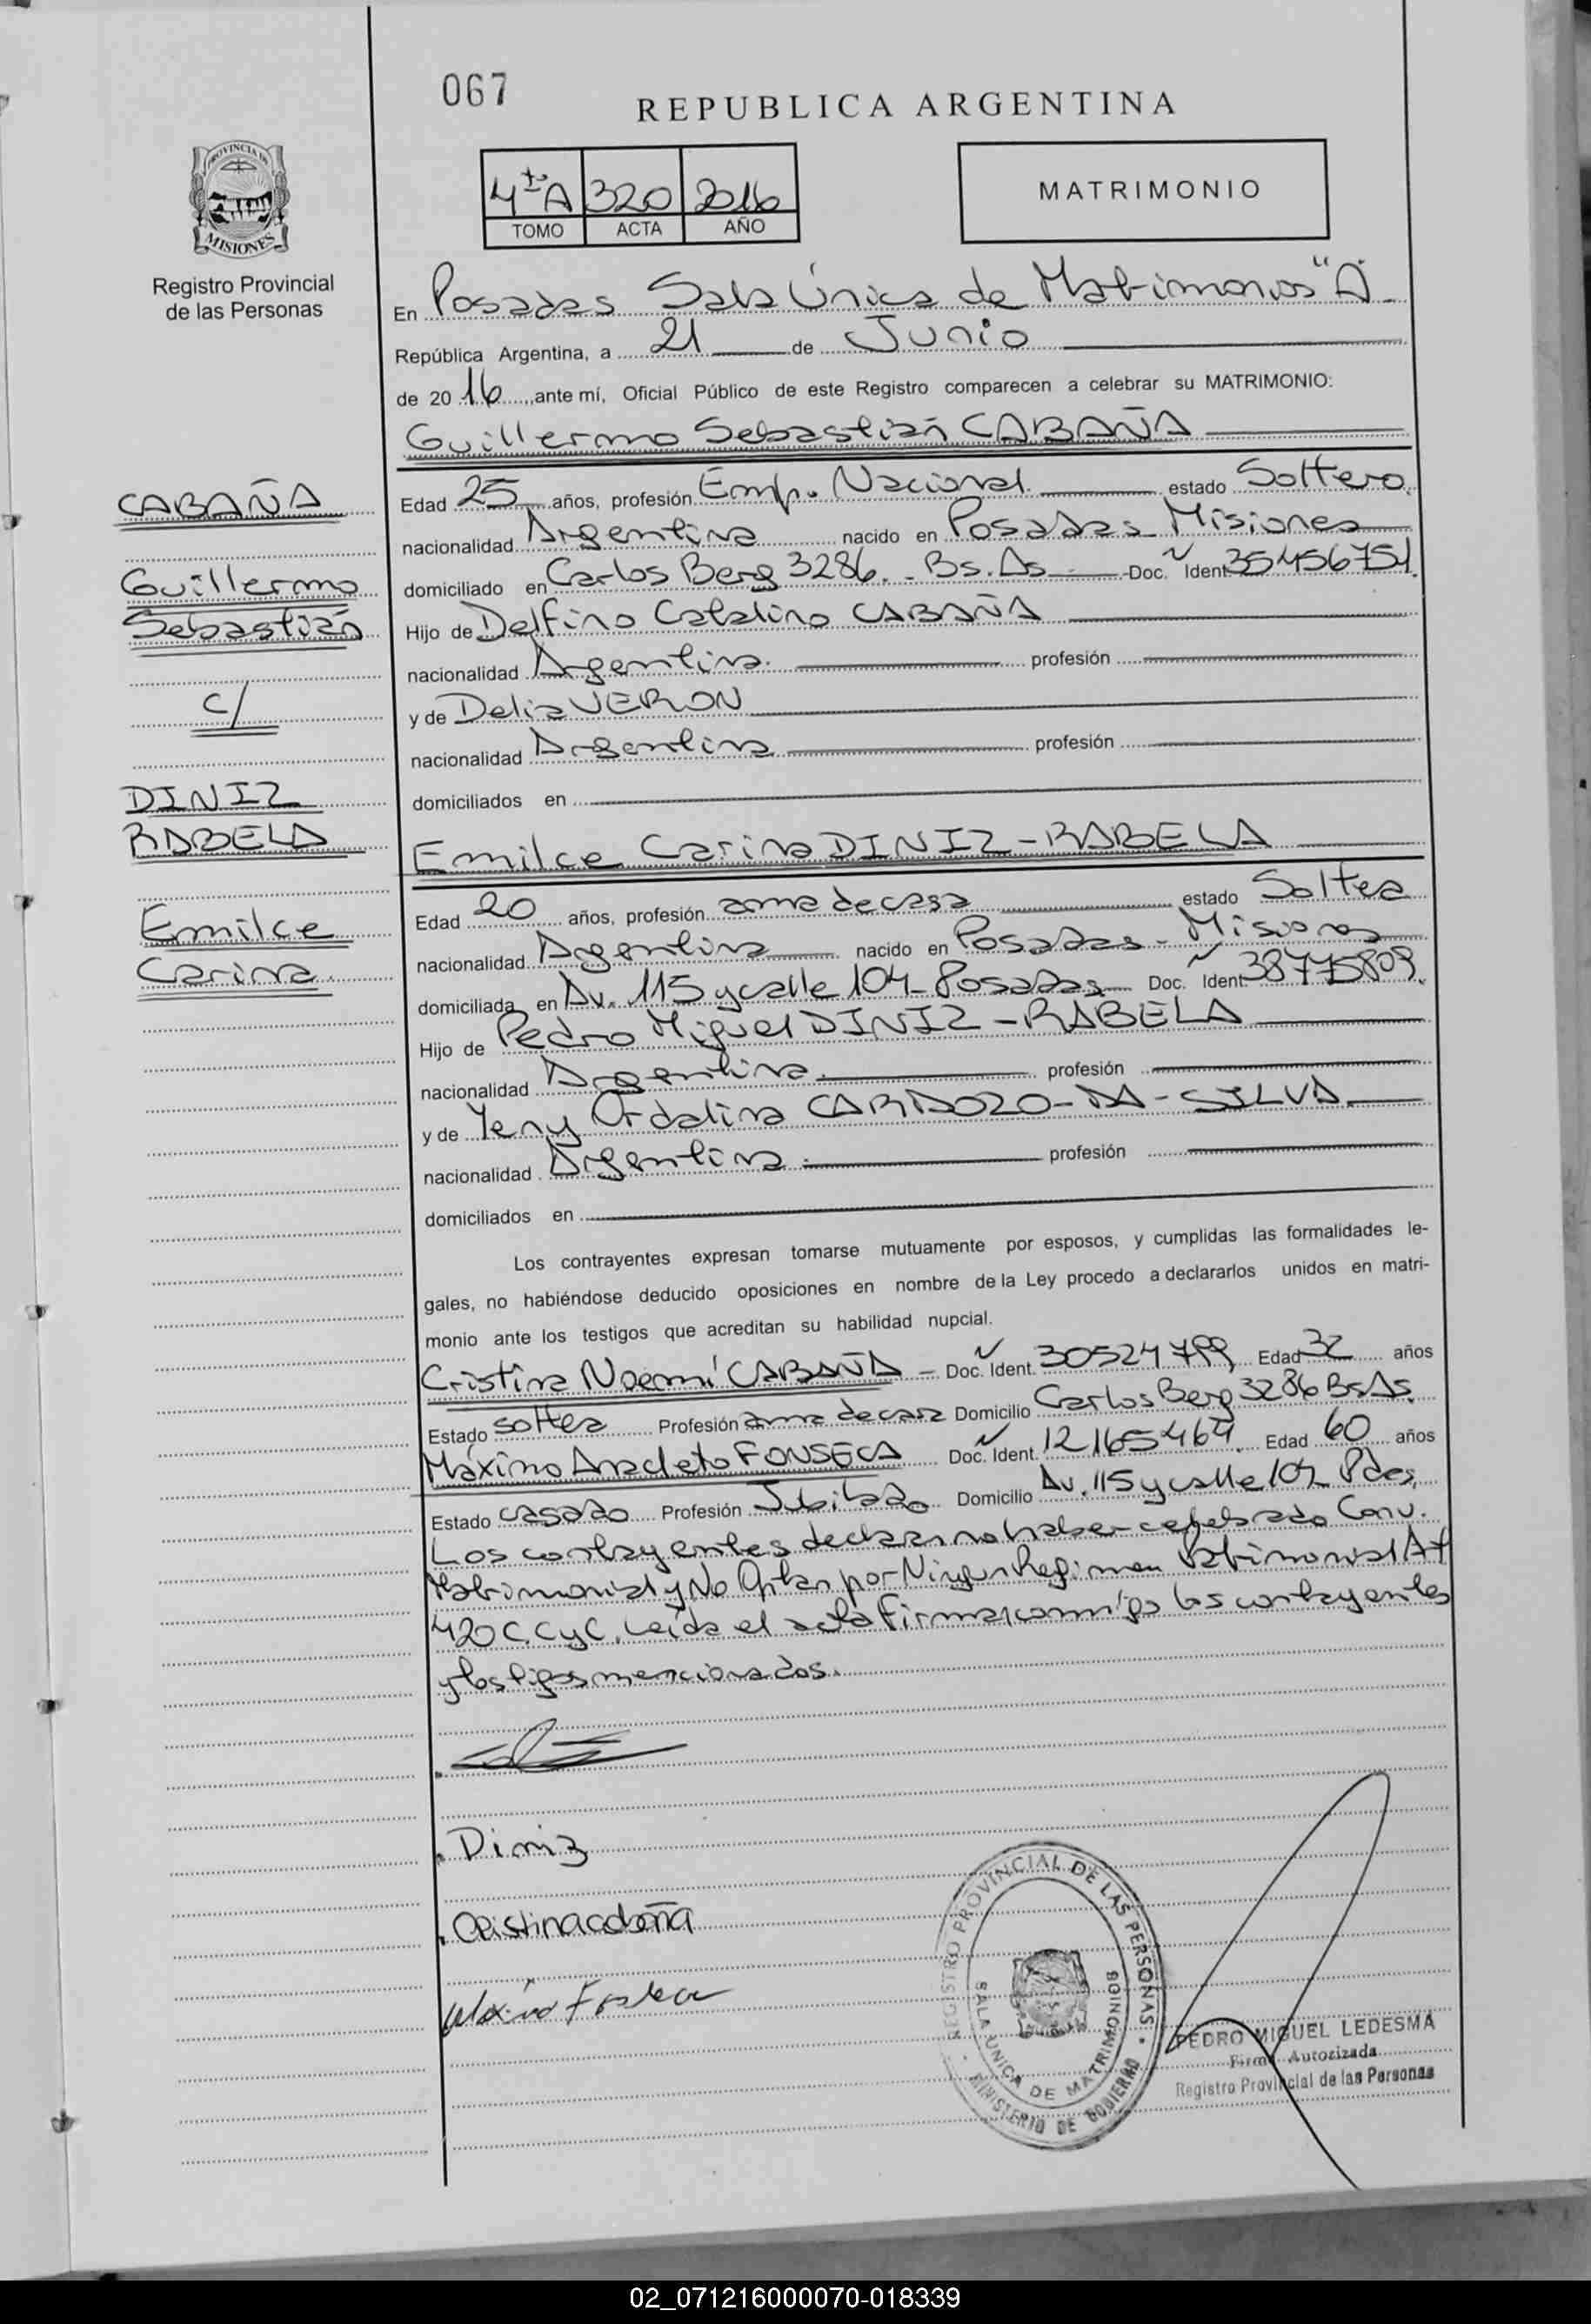 067
REPUBLICA ARGENTINA
PROVINCIA DE
MISIONES
Registro Provincial
de las Personas
4to A 320 2016
TOMO ACTA AÑO
MATRIMONIO
En Posadas Sala Única de Matrimonios "A"
República Argentina, a 21 de Junio
de 2016, ante mí, Oficial Público de este Registro comparecen a celebrar su MATRIMONIO:
Guillermo Sebastián CABAÑA
CABAÑA
Guillermo
Sebastián
c/
DINIZ
RABELA
Emilce
Carina
Edad 25 años, profesión Emp. Nacional estado Soltero
nacionalidad Argentina nacido en Posadas Misiones
domiciliado en Carlos Berg 3286.- Bs. As Doc. Ident 35456751
Hijo de Delfino Catalino CABAÑA
nacionalidad Argentina. profesión
y de Delia VERON
nacionalidad Argentina profesión
domiciliados en
Emilce Carina DINIZ-RABELA
Edad 20 años, profesión ama de casa estado Soltea
nacionalidad Argentina nacido en Posadas - Misiones
domiciliada en Av. 115 y calle 104-Posadas Doc. Ident 38775809
Hijo de Pedro Miguel DINIZ-RABELA
nacionalidad Argentina. profesión
y de Yeny Ordalina CARDOZO-DA-SILVA
nacionalidad Argentina. profesión
domiciliados en
Los contrayentes expresan tomarse mutuamente por esposos, y cumplidas las formalidades le-
gales, no habiéndose deducido oposiciones en nombre de la Ley procedo a declararlos unidos en matri-
monio ante los testigos que acreditan su habilidad nupcial.
Cristina Noemí CABAÑA - Doc. Ident. 30524799 Edad 32 años
Estado soltea Profesión ama de casa Domicilio Carlos Berg 3286 Bs As.
Máximo Anacleto FONSECA Doc. Ident. 12165464 Edad 60 años
Estado casado Profesión Jubilado Domicilio Av. 115 y calle 104 Pdas.
Los contrayentes declaran no haber celebrado Conv.
Matrimonial y No Optan por Ningun Regimen Patrimonial Art
420 C. C y C. Leída el acta firman conmigo los contrayentes
y testigos mencionados.
Diniz
Cristina cabaña
Máximo Fonseca
REGISTRO PROVINCIAL DE LAS PERSONAS
SALA UNICA DE MATRIMONIOS
MINISTERIO DE GOBIERNO
PEDRO MIGUEL LEDESMA
Firma Autorizada
Registro Provincial de las Personas
02_071216000070-018339